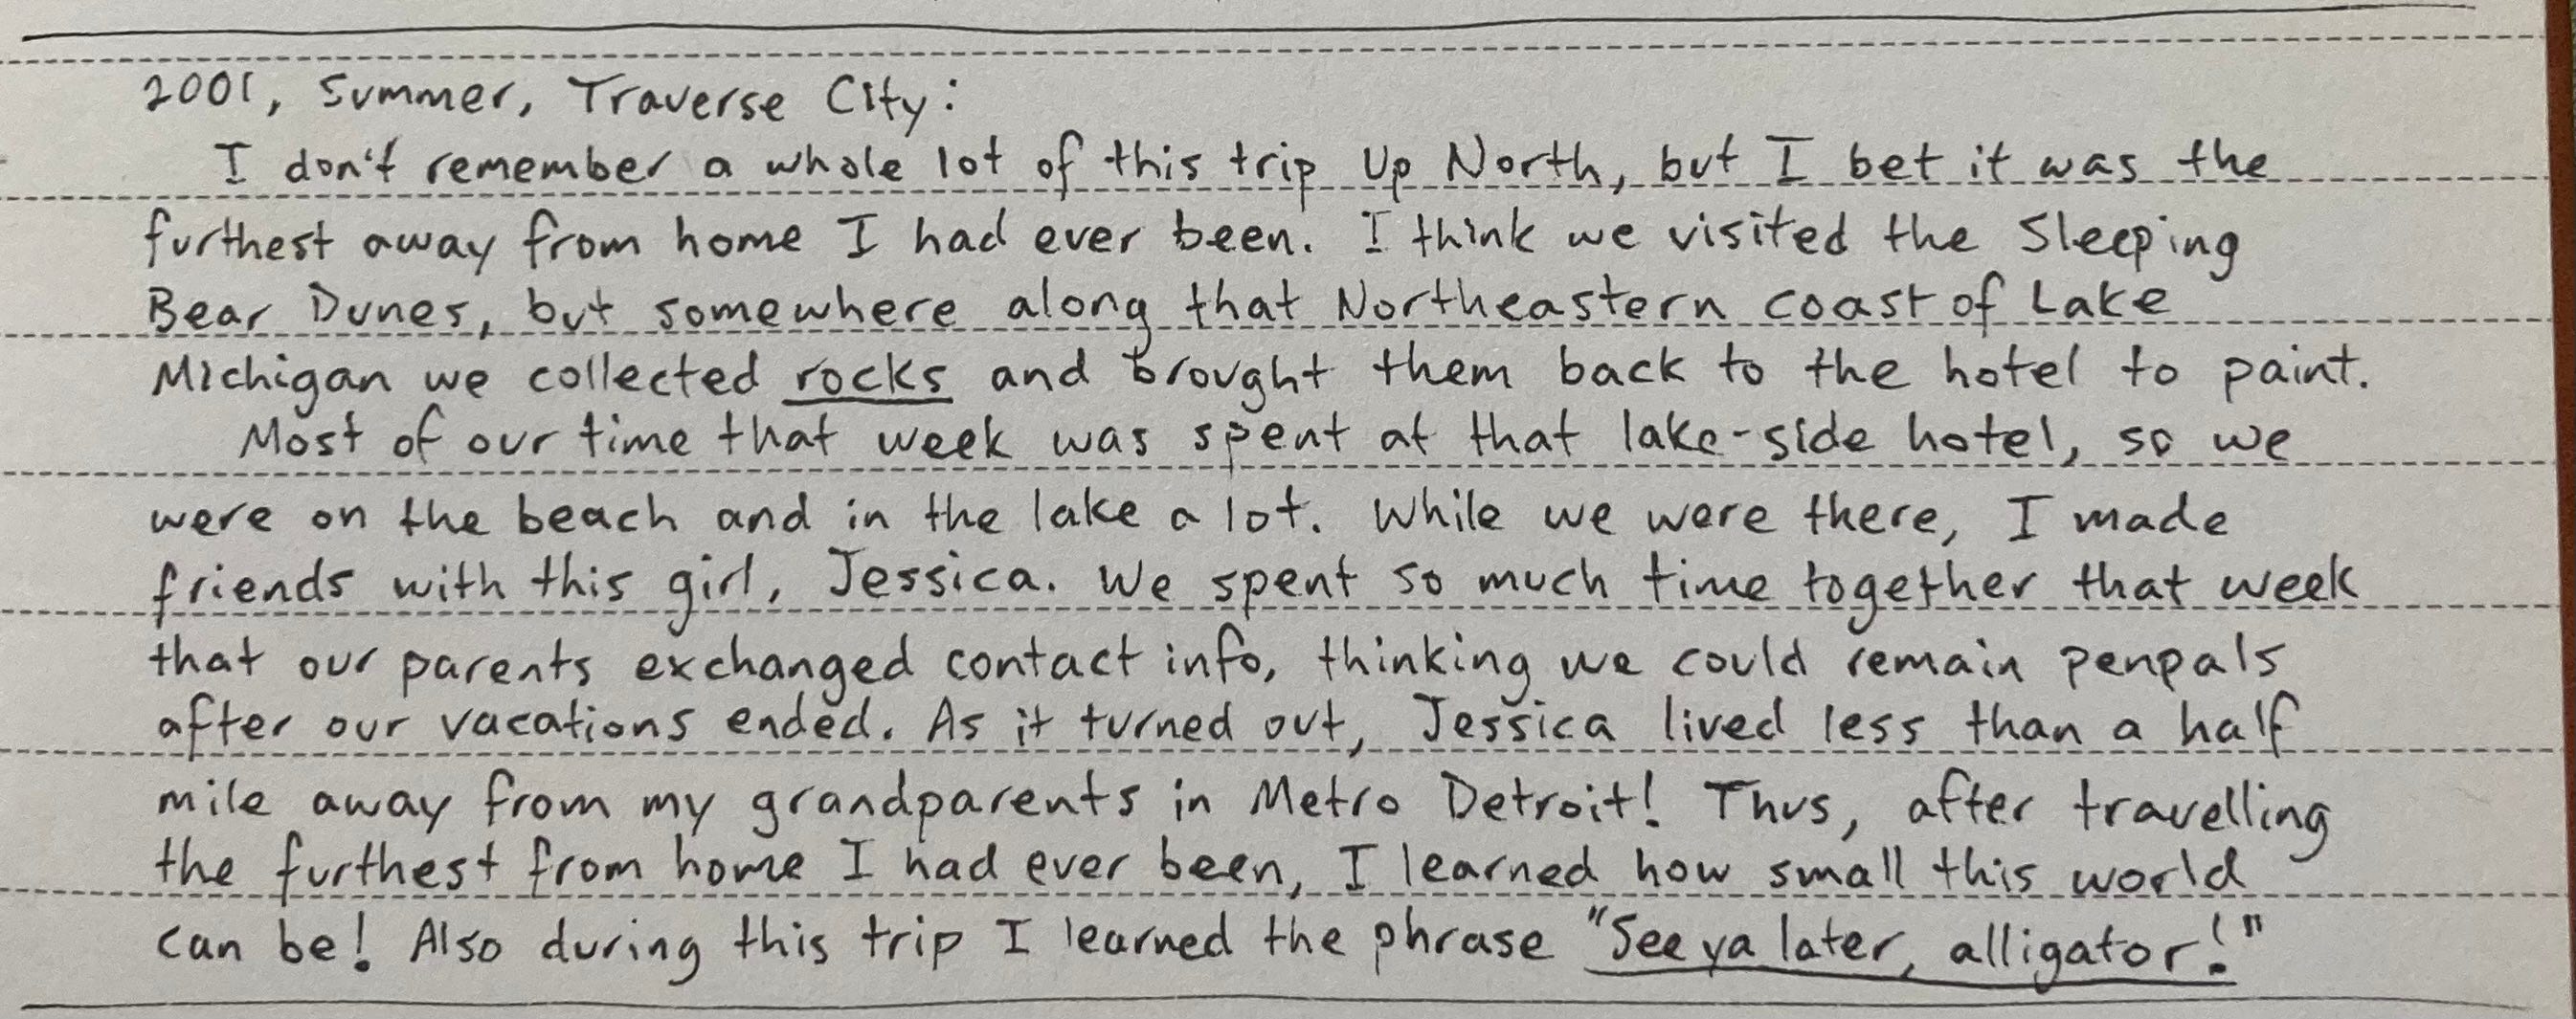 2001, Summer, Traverse City:
I don't remember a whole lot of this trip Up North, but I bet it was the
furthest away from home I had ever been. I think we visited the Sleeping
Bear Dunes, but somewhere along that Northeastern coast of Lake
Michigan we collected rocks and brought them back to the hotel to paint.
Most of our time that week was spent at that lake-side hotel, so we
were on the beach and in the lake a lot. While we were there, I made
friends with this girl, Jessica. We spent so much time together that week
that our parents exchanged contact info, thinking we could remain penpals
after our vacations ended. As it turned out, Jessica lived less than a half
mile away from my grandparents in Metro Detroit! Thus, after travelling
the furthest from home I had ever been, I learned how small this world
can be! Also during this trip I learned the phrase "See ya later, alligator!"